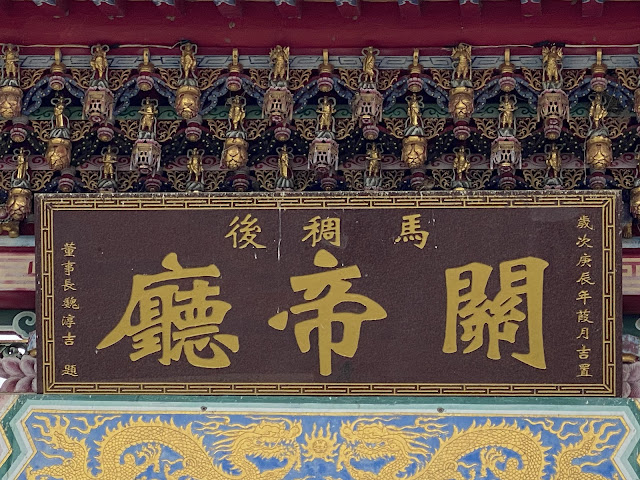 歲次庚辰年葭月吉置
馬稠後
關帝廳
董事長魏淳吉 題